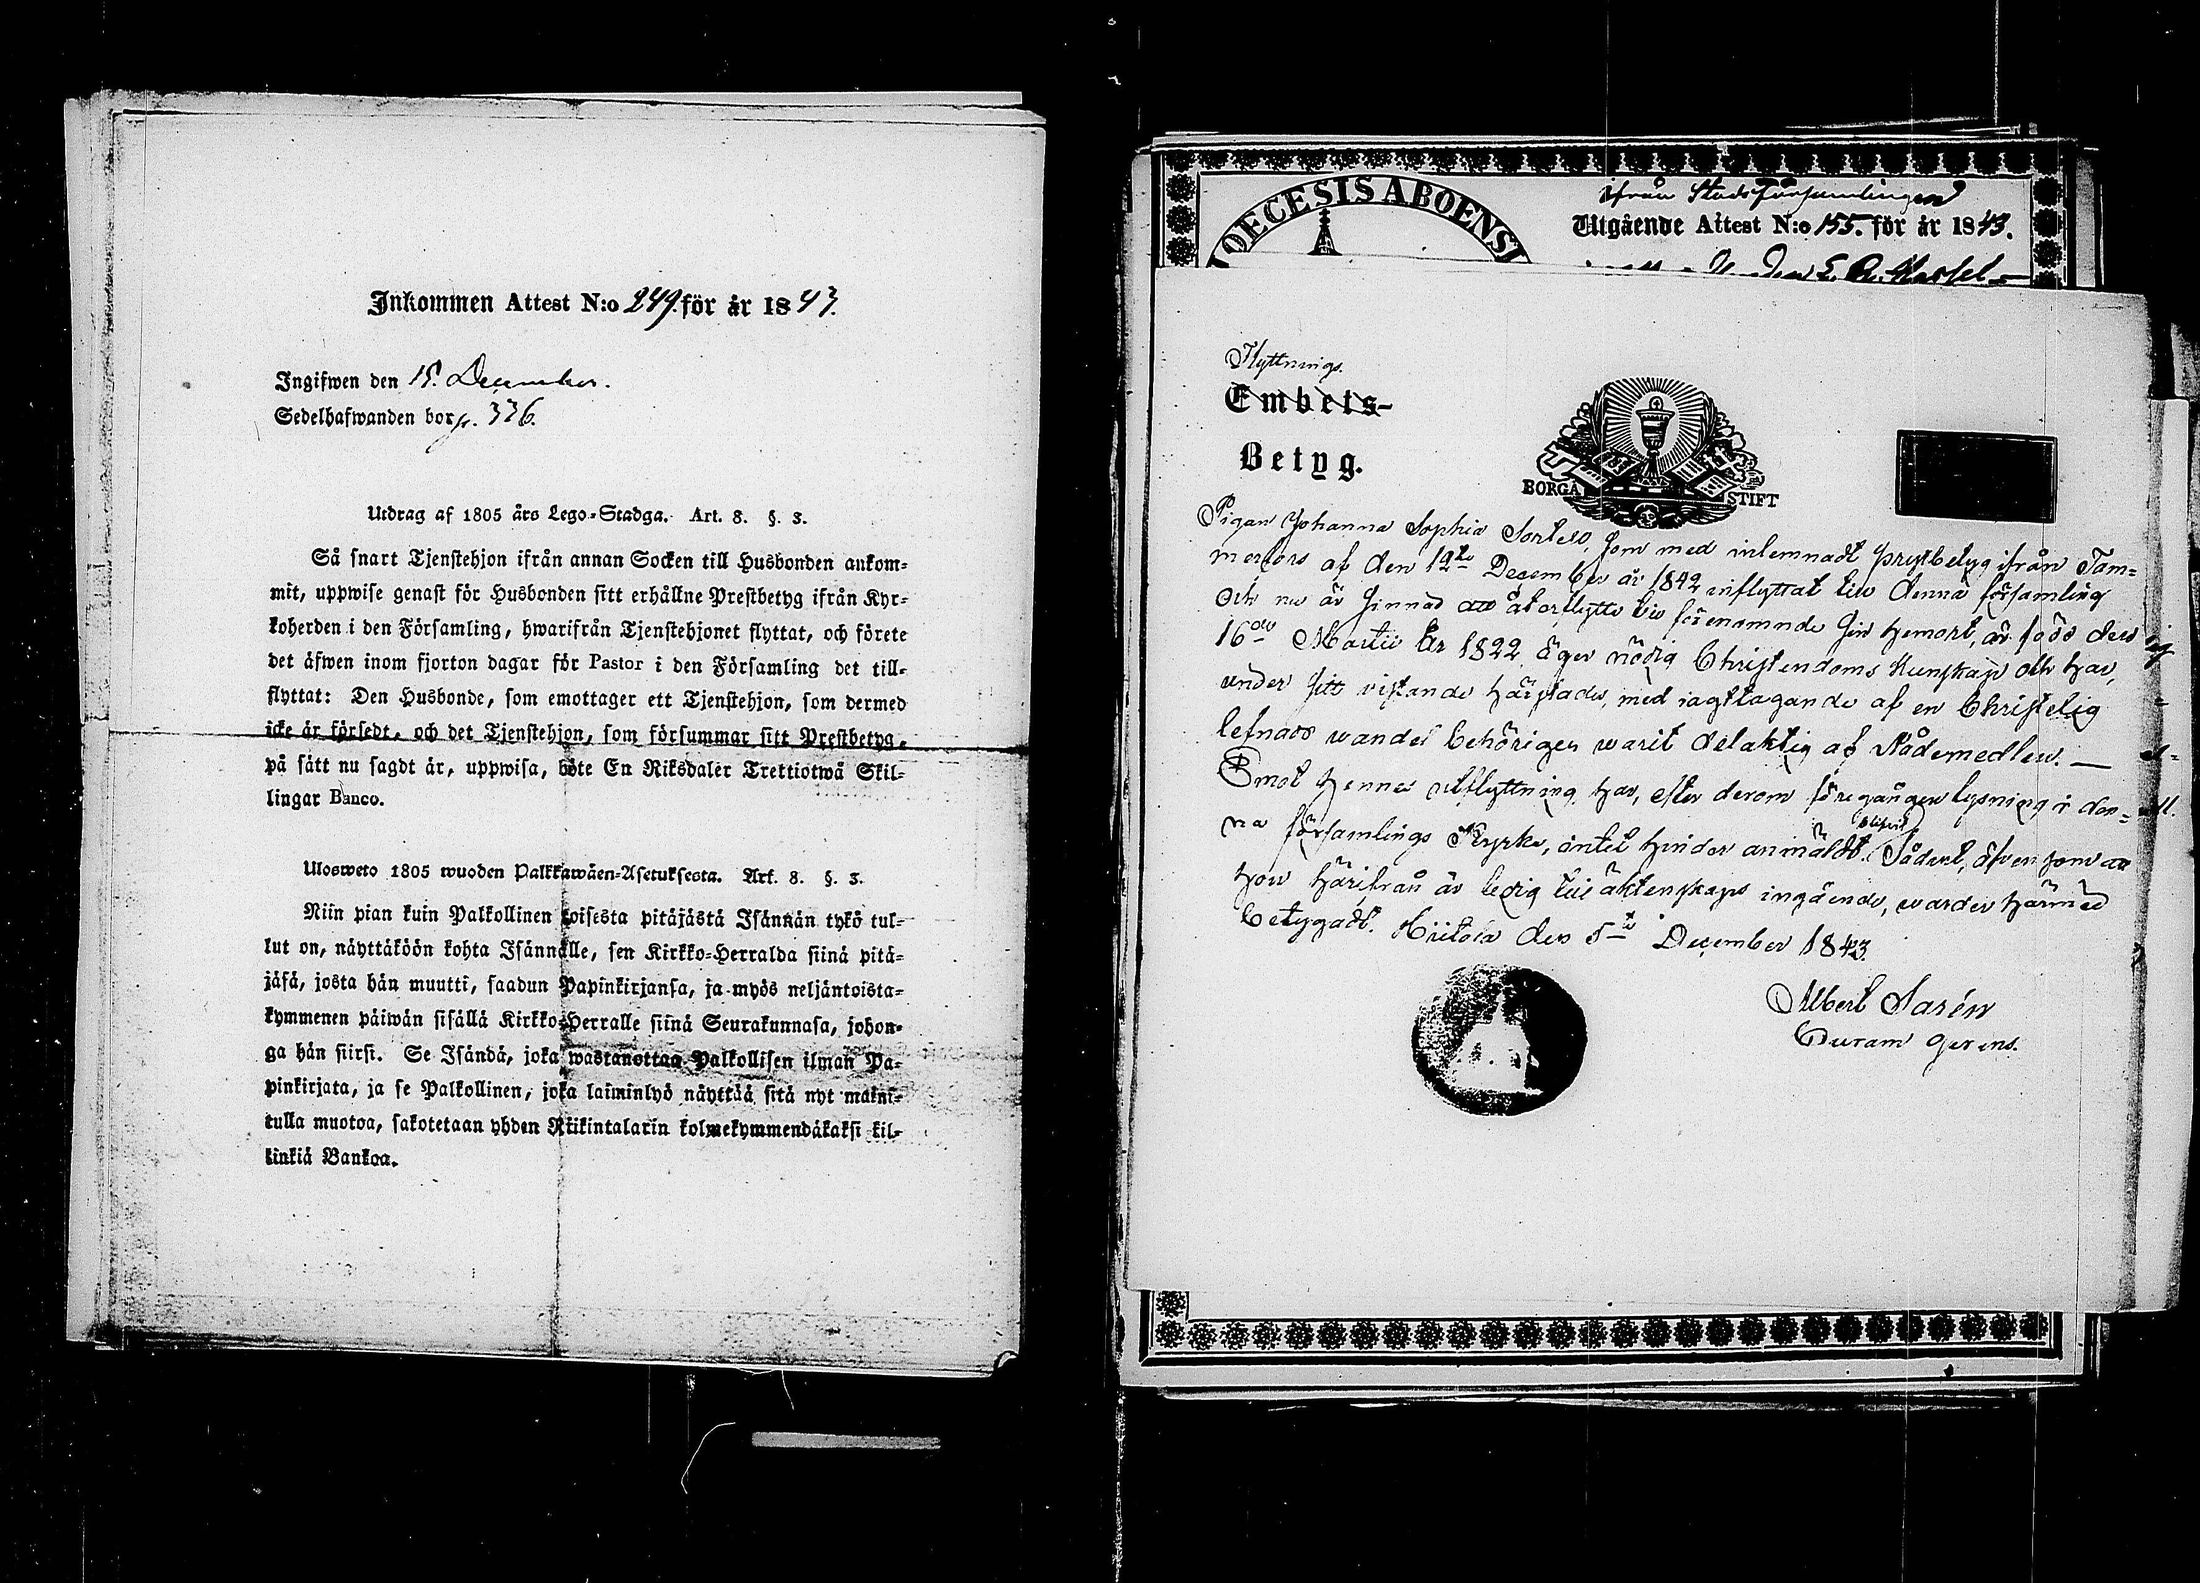 Inkommen Attest N:o 249. för år 1843.
Ingifwen den 15. December.
Sedelhafwanden bor p. 336.
Utdrag af 1805 års Lego-Stadga. Art. 8. §. 3.
Så snart Tjenstehjon ifrån annan Socken till Husbonden ankom-
mit, uppwise genast för Husbonden sitt erhållne Prestbetyg ifrån Kyr-
koherden i den Församling, hwarifrån Tjenstehjonet flyttat, och förete
det äfwen inom fjorton dagar för Pastor i den Församling det till-
flyttat: Den Husbonde, som emottager ett Tjenstehjon, som dermed
icke är försedt, och det Tjenstehjon, som försummar sitt Prestbetyg,
på sätt nu sagdt är, uppwisa, böte En Riksdaler Trettiotwå Skil-
lingar Banco.
Ulosweto 1805 wuoden Palkkawäen-Asetuksesta. Art. 8. §. 3.
Niin pian kuin Palkollinen toisesta pitäjästä Isännän tykö tul-
lut on, näyttäköön kohta Isännälle, sen Kirkko-Herralda siinä pitä-
jäsä, josta hän muutti, saadun Papinkirjansa, ja myös neljäntoista-
kymmenen päiwän sisällä Kirkko-Herralle siinä Seurakunnasa, johon-
ga hän siirsi. Se Isändä, joka wastanottaa Palkollisen ilman Pa-
pinkirjata, ja se Palkollinen, joka laiminlyö näyttää sitä nyt maini-
tulla muotoa, sakotetaan yhden Riikintalarin kolmekymmendäkaksi kil-
linkiä Bankoa.
DIOECESIS ABOENSI
ifrån Stadsförsamlingen
Utgående Attest N:o 155. för år 1843.
Flyttnings
Embets-
Betyg.
BORGÅ STIFT
Pigan Johanna Sophia Sortell, som med inlemnadt prestbetyg ifrån Tam=
merfors af den 12te December år 1842 inflyttat till denna församling
och nu är sinnad att återflytta till förenämnde sin hemort, är född den
16de Martii år 1822, äger nödig Christendoms Kunskap och har,
under sitt vistande härstädes, med iagttagande af en Christelig
lefnads wandel behörigen warit delaktig af Nådemedlen. —
Emot hennes utflyttning har, efter derom föregången lysning i den=
na församlings Kyrka, intet hinder blifvit anmäldt. Sådant, äfven som att
hon härifrån är ledig till äktenskaps ingående, warder härmed
betygadt. Hiitola den 5te December 1843.
Albert Sarén
Curam gerens.